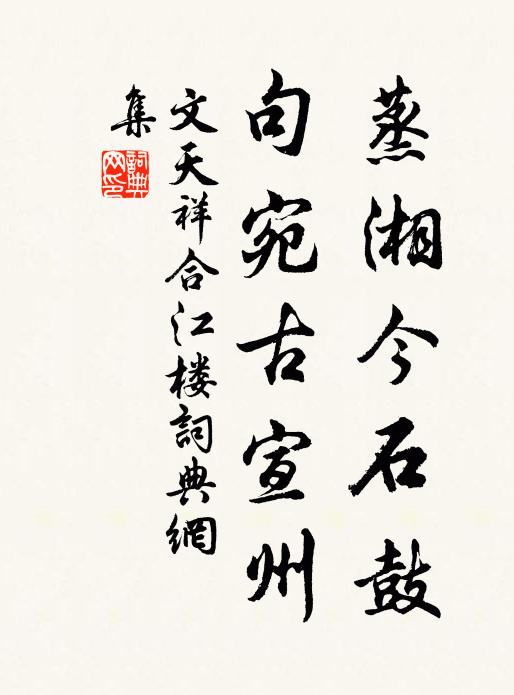 蒸湘今石鼓
句宛古宣州
文天祥合江楼詞典網
集
詞典网印